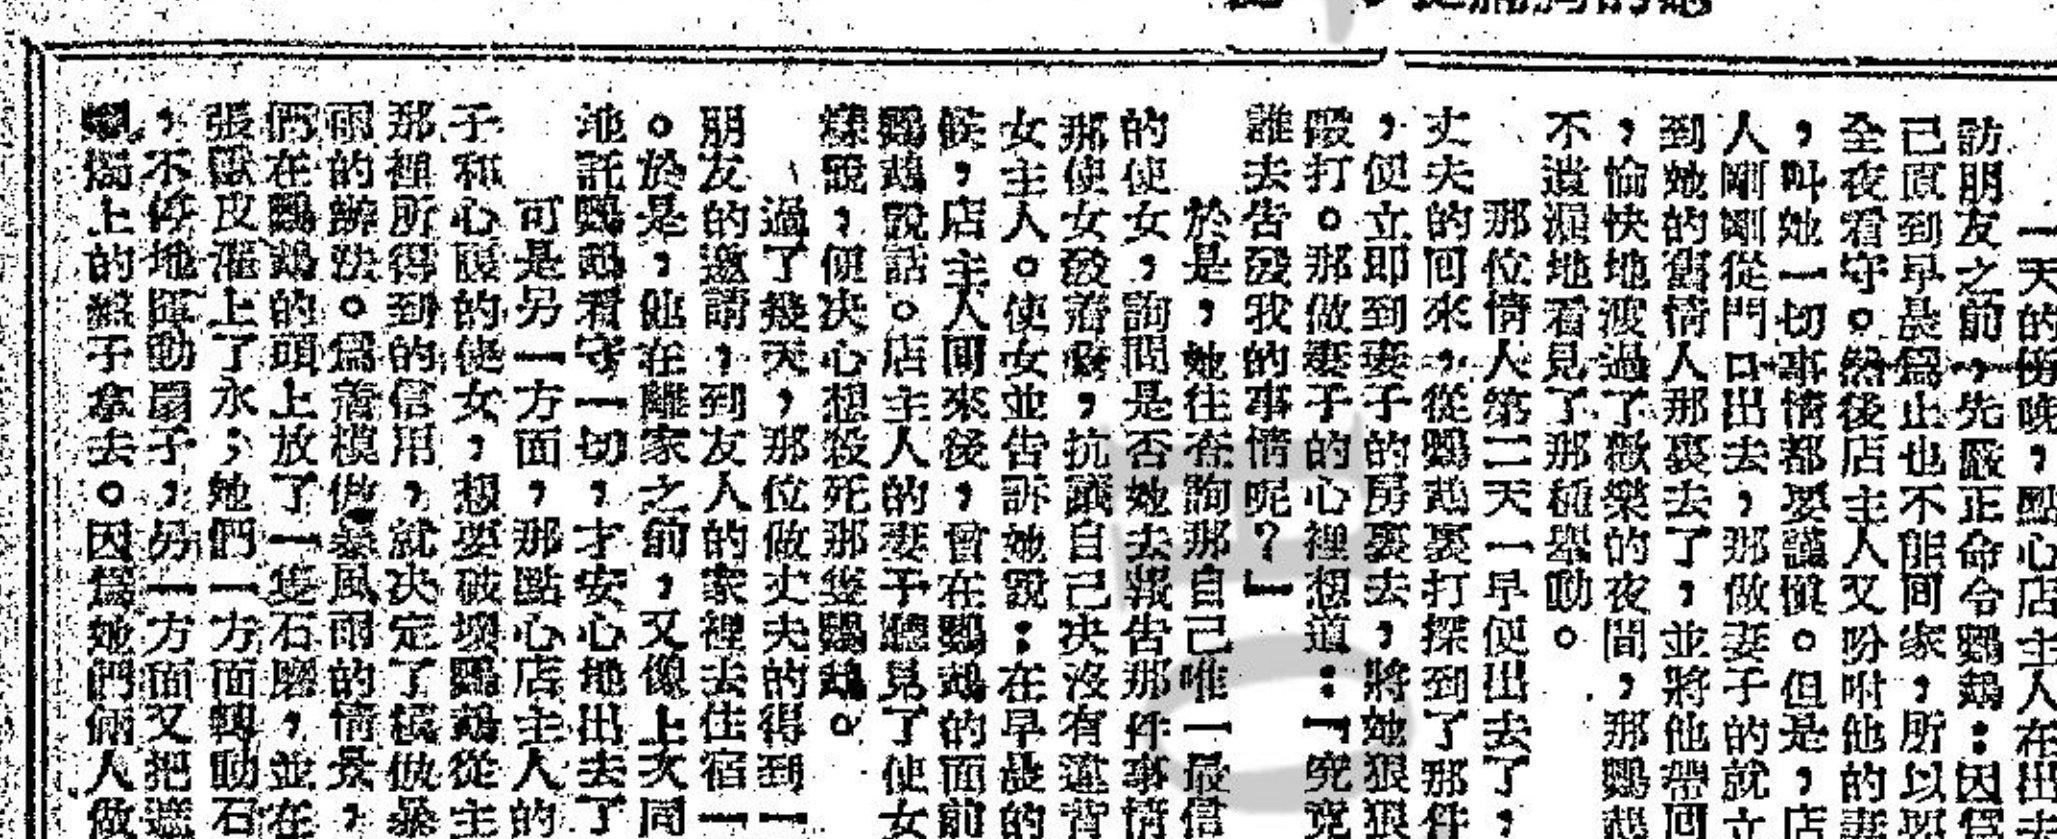 一天的傍晚，點心店主人在出去
訪朋友之前，先嚴正命令鸚鵡：因爲
己直到早晨爲止也不能回家，所以要
全夜看守。然後店主人又吩咐他的妻
，叫她一切事情都要謹愼。但是，店
人剛剛從門口出去，那做妻子的就立
到她的舊情人那裏去了，並將他帶回
，愉快地渡過了歡樂的夜間，那鸚鵡
不遺漏地看見了那種舉動。
那位情人第二天一早便出去了，
丈夫的回來，從鸚鵡裏打探到了那件
，便立即到妻子的房裏去，將她狠狠
毆打。那做妻子的心裡想道：「究竟
誰去告發我的事情呢？」
於是，她往查詢那自己唯一最信
的使女，詢問是否她去報告那件事情
那使女發着誓，抗議自己決沒有違背
女主人。使女並告訴她說：在早晨的
候，店主人回來後，曾在鸚鵡的面前
鸚鵡說話。店主人的妻子聽見了使女
樣說，便決心想殺死那隻鸚鵡。
過了幾天，那位做丈夫的得到一
朋友的邀請，到友人的家裡去住宿一
。於是，他在離家之前，又像上次同
地託鸚鵡看守一切，才安心地出去了
可是另一方面，那點心店主人的
子和心腹的使女，想要破壞鸚鵡從主
那裡所得到的信用，就決定了模倣暴
雨的辦法。爲着模倣暴風雨的情景，
們在鸚鵡的頭上放了一隻石磨，並在
張獸皮灌上了水；她們一方面轉動石
，不停地匭動扇子，另一方面又把遮
上的絲子拿去。因爲她們倆人做